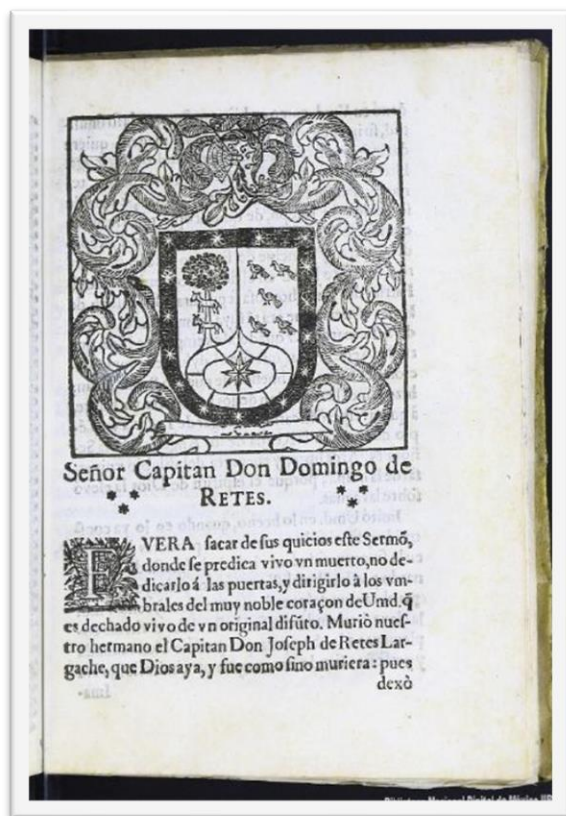 Señor Capitan Don Domingo de
RETES.
FVERA sacar de sus quicios este Sermõ,
donde se predica vivo vn muerto, no de-
dicarlo á las puertas, y dirigirlo à los vm-
brales del muy noble coraçon de Umd. q̃
es dechado vivo de vn original difũto. Muriò nues-
tro hermano el Capitan Don Joseph de Retes Lar-
gache, que Dios aya, y fue como sino muriera: pues
dexò
Biblioteca Nacional Digital de México